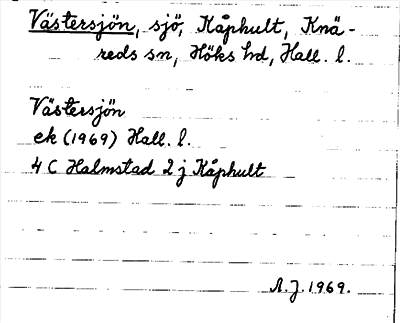 Västersjön, sjö, Kåphult, Knä-
reds sn, Höks hd, Hall. l.
Västersjön
ek (1969) Hall. l.
4 C Halmstad 2 j Kåphult
A.J. 1969.